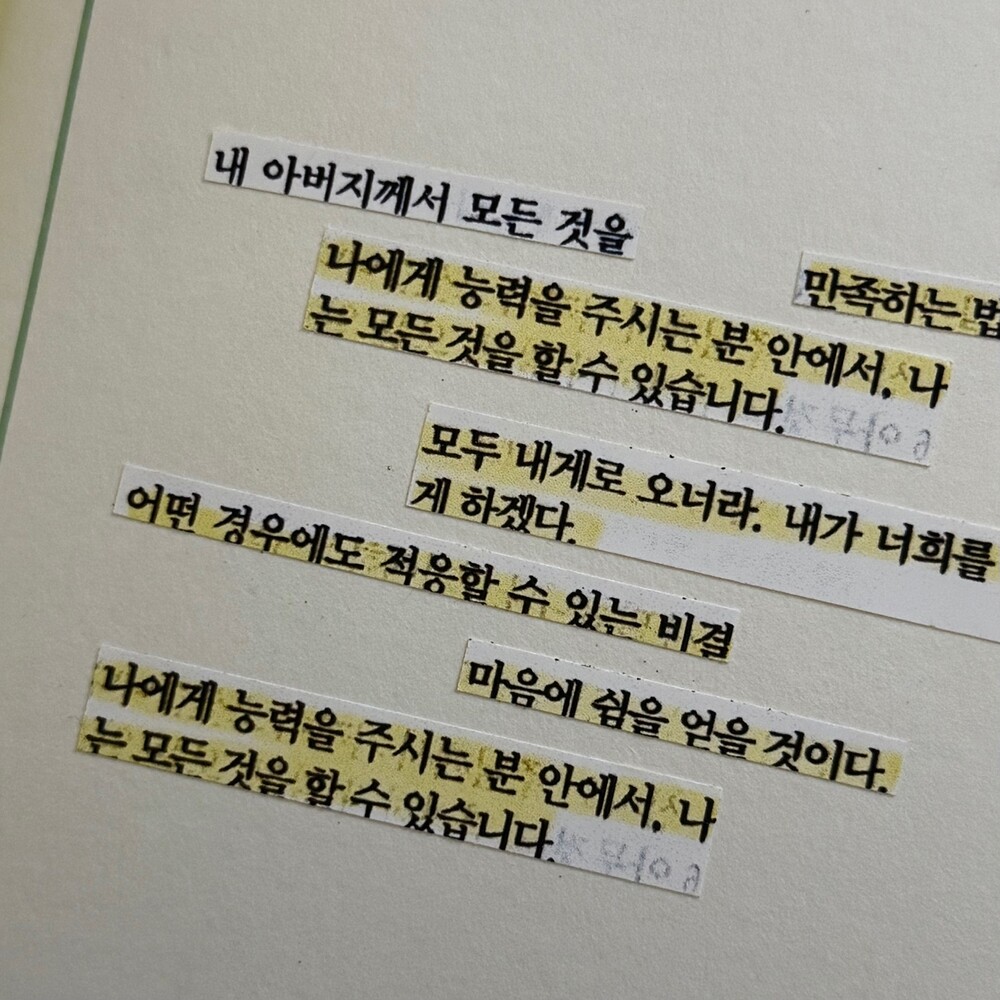 내 아버지께서 모든 것을
만족하는 법
나에게 능력을 주시는 분 안에서, 나
는 모든 것을 할 수 있습니다.
모두 내게로 오너라. 내가 너희를
게 하겠다.
어떤 경우에도 적응할 수 있는 비결
마음에 쉼을 얻을 것이다.
나에게 능력을 주시는 분 안에서, 나
는 모든 것을 할 수 있습니다.